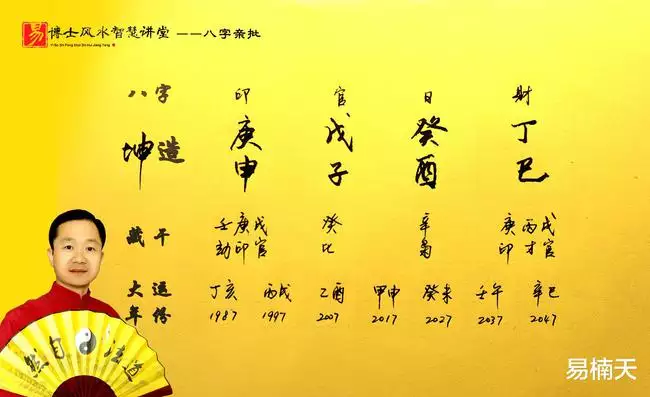 易 博士风水智慧讲堂 ——八字亲批
八字 印 官 日 财
坤造 庚 戊 癸 丁
申 子 酉 巳
藏干 壬庚戊 癸 辛 庚丙戊
劫印官 比 枭 印才官
大运 丁亥 丙戌 乙酉 甲申 癸未 壬午 辛巳
年份 1987 1997 2007 2017 2027 2037 2047
然自法道
易楠天